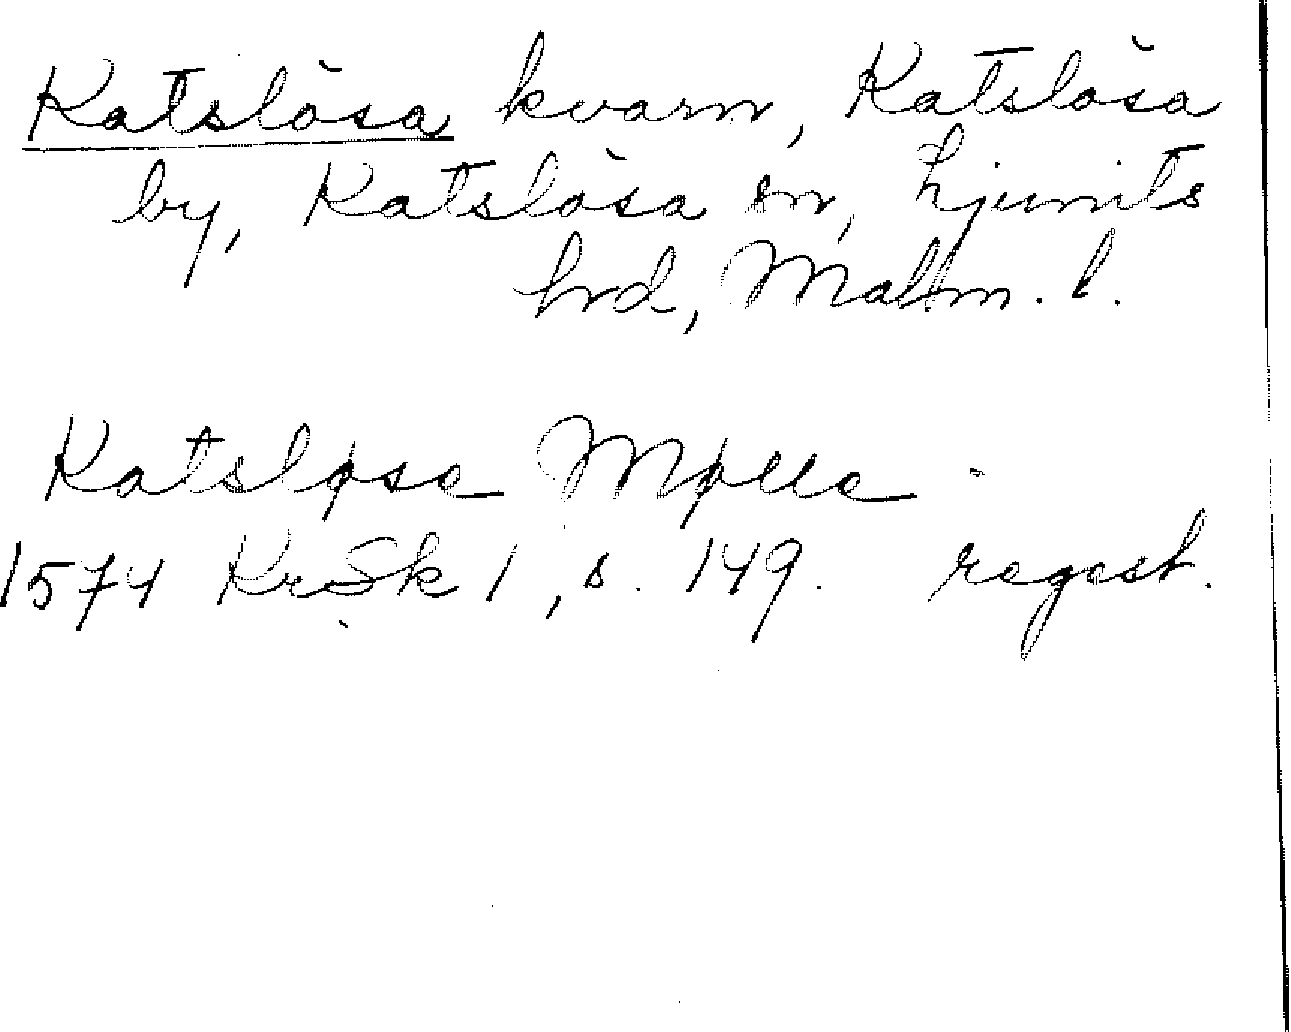 Katslösa kvarn, Katslösa
by, Katslösa sn, Ljunits
hrd, Malm. l.
Katsløse Mølle -
1574 KrSk 1, s. 149. regest.